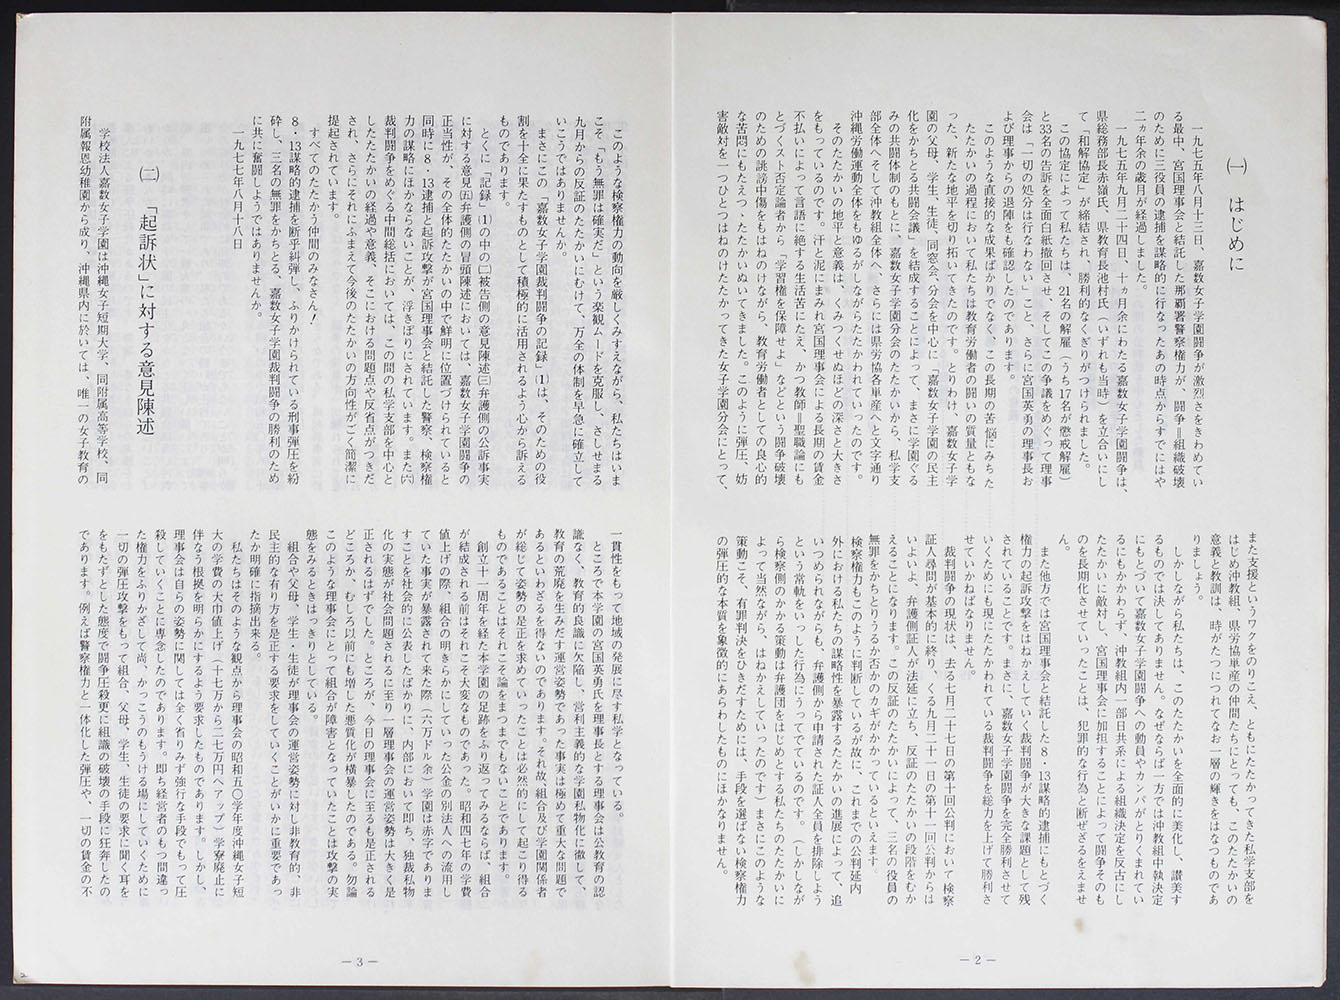 ㈠　はじめに
一九七五年八月十三日、嘉数女子学園闘争が激烈さをきわめてい
る最中、宮国理事会と結託した那覇署警察権力が、闘争＝組織破壊
のために三役員の逮捕を謀略的に行なったあの時点からすでにはや
二ヵ年余の歳月が経過しました。
一九七五年九月二十四日、十ヵ月余にわたる嘉数女子学園闘争は、
県総務部長赤嶺氏、県教育長池村氏（いずれも当時）を立合いにし
て「和解協定」が締結され、勝利的なくぎりがつけられました。
この協定によって私たちは、21名の解雇（うち17名が懲戒解雇）
と33名の告訴を全面白紙撤回させ、そしてこの争議をめぐって理事
会は「一切の処分は行なわない」こと、さらに宮国英勇の理事長お
よび理事からの退陣をも確認したのであります。
このような直接的な成果ばかりでなく、この長期の苦悩にみちた
たたかいの過程において私たちは教育労働者の闘いの質量ともな
った、新たな地平を切り拓いてきたのです。とりわけ、嘉数女子学
園の父母、学生、生徒、同窓会、分会を中心に「嘉数女子学園の民主
化をかちとる共闘会議」を結成することによって、まさに学園ぐる
みの共闘体制のもとに、嘉数女子学園分会のたたかいから、私学支
部全体へそして沖教組全体へ、さらには県労協各単産へと文字通り
沖縄労働運動全体をもゆるがしながらたたかわれていったのです。
そのたたかいの地平と意義は、くみつくせぬほどの深さと大きさ
をもっているのです。汗と泥にまみれ宮国理事会による長期の賃金
不払いによって言語に絶する生活苦にたえ、かつ教師＝聖職論にも
とづくスト否定論者から「学習権を保障せよ」などという闘争破壊
のための誹謗中傷をもはねのけながら、教育労働者としての良心的
な苦悶にもたえつゝたたかいぬいてきました。このように弾圧、妨
害敵対を一つひとつはねのけたたかってきた女子学園分会にとって、
また支援というワクをのりこえ、ともにたたかってきた私学支部を
はじめ沖教組、県労協単産の仲間たちにとっても、このたたかいの
意義と教訓は、時がたつにつれてなお一層の輝きをはなつものであ
りましょう。
しかしながら私たちは、このたたかいを全面的に美化し、讃美す
るものでは決してありません。なぜならば一方では沖教組中執決定
にもとづいて嘉数女子学園闘争への動員やカンパがとりくまれてい
るにもかかわらず、沖教組内一部日共系による組織決定を反古にし
たたかいに敵対し、宮国理事会に加担することによって闘争そのも
のを長期化させていったことは、犯罪的な行為と断ぜざるをえませ
ん。
また他方では宮国理事会と結託した8・13謀略的逮捕にもとづく
権力の起訴攻撃をはねかえしていく裁判闘争が大きな課題として残
されていることです。まさに、嘉数女子学園闘争を完全勝利させて
いくためにも現にたたかわれている裁判闘争を総力を上げて勝利さ
せていかねばなりません。
裁判闘争の現状は、去る七月二十七日の第十回公判において検察
証人尋問が基本的に終り、くる九月二十一日の第十一回公判からは
いよいよ、弁護側証人が法廷に立ち、反証のたたかいの段階をむか
えることになります。この反証のたたかいによって、三名の役員の
無罪をかちとりうるか否かのカギがかかっているといえます。
検察権力もこのように判断しているが故に、これまでの公判廷内
外における私たちの謀略性を暴露するたたかいの進展によって、追
いつめられながらも、弁護側から申請された証人全員を排除しよう
という常軌をいっした行為にうってでているのです。（しかしなが
ら検察側のかかる策動は弁護団をはじめとする私たちのたたかいに
よって当然ながら、はねかえしていったのです）まさにこのような
策動こそ、有罪判決をひきだすためには、手段を選ばない検察権力
の弾圧的な本質を象徴的にあらわしたものにほかなりません。
―2―
このような検察権力の動向を厳しくみすえながら、私たちはいま
こそ「もう無罪は確実だ」という楽観ムードを克服し、さしせまる
九月からの反証のたたかいにむけて、万全の体制を早急に確立して
いこうではありませんか。
まさにこの「嘉数女子学園裁判闘争の記録」⑴は、そのための役
割を十全に果たすものとして積極的に活用されるよう心から訴える
ものであります。
とくに「記録」⑴の中の㈡被告側の意見陳述㈢弁護側の公訴事実
に対する意見㈤弁護側の冒頭陳述においては、嘉数女子学園闘争の
正当性が、その全体的たたかいの中で鮮明に位置づけられていると
同時に8・13逮捕と起訴攻撃が宮国理事会と結託した警察、検察権
力の謀略にほかならないことが、浮きぼりにされています。また㈥
裁判闘争をめぐる中間総括においては、この間の私学支部を中心と
したたたかいの経過や意義、そこにおける問題点や反省点がつきだ
され、さらにそれにふまえて今後のたたかいの方向性がごく簡潔に
提起されています。
すべてのたたかう仲間のみなさん！
8・13謀略的逮捕を断乎糾弾し、ふりかけられている刑事弾圧を紛
砕し、三名の無罪をかちとる、嘉数女子学園裁判闘争の勝利のため
に共に奮闘しようではありませんか。
一九七七年八月十八日
㈡　「起訴状」に対する意見陳述
学校法人嘉数女子学園は沖縄女子短期大学、同附属高等学校、同
附属報恩幼稚園から成り、沖縄県内に於いては、唯一の女子教育の
一貫性をもって地域の発展に尽す私学となっている。
ところで本学園の宮国英勇氏を理事長とする理事会は公教育の認
識なく、教育的良識に欠陥し、営利主義的な学園私物化に徹して、
教育の荒廃を生みだす運営姿勢であった事実は極めて重大な問題で
あるといわざるを得ないのであります。それ故組合及び学園関係者
が総じて姿勢の是正を求めていったことは必然的にして起こり得る
ものであることはそれこそ論をまつまでもないことであります。
創立十一周年を経た本学園の足跡をふり返ってみるならば、組合
が結成される前はそれこそ大変なものであった。昭和四七年の学費
値上げの際、組合の明きらかにしていった公金の別法人への流用し
ていた事実が暴露されて来た際（六万ドル余）学園は赤字でありま
すことを社会的に公表したばかりに、内部において即ち、独裁私物
化の実態が社会問題されるに至り一層理事会の運営姿勢は大きく是
正されるはずでした。ところが、今日の理事会に至るも是正される
どころか、むしろ以前にも増した悪質化が横暴したのである。勿論
このような理事会にとって組合が障害となっていたことは攻撃の実
態をみるときはっきりとしている。
組合や父母、学生・生徒が理事会の運営姿勢に対し非教育的、非
民主的な有り方を是正する要求をしていくことがいかに重要であっ
たか明確に指摘出来る。
私たちはそのような観点から理事会の昭和五〇学年度沖縄女子短
大の学費の大巾値上げ（十七万から二七万円へアップ）学寮廃止に
伴なう根拠を明らかにするよう要求したものであります。しかし、
理事会は自らの姿勢に関しては全く省りみず強行な手段でもって圧
殺していくことに専念したのであります。即ち経営者のもつ間違っ
た権力をふりかざして尚、かっこうのもうける場にしていくために
一切の弾圧攻撃をもって組合、父母、学生、生徒の要求に聞く耳を
をもたずとした態度で闘争圧殺更に組織の破壊の手段に狂奔したの
であります。例えば警察権力と一体化した弾圧や、一切の賃金の不
―3―